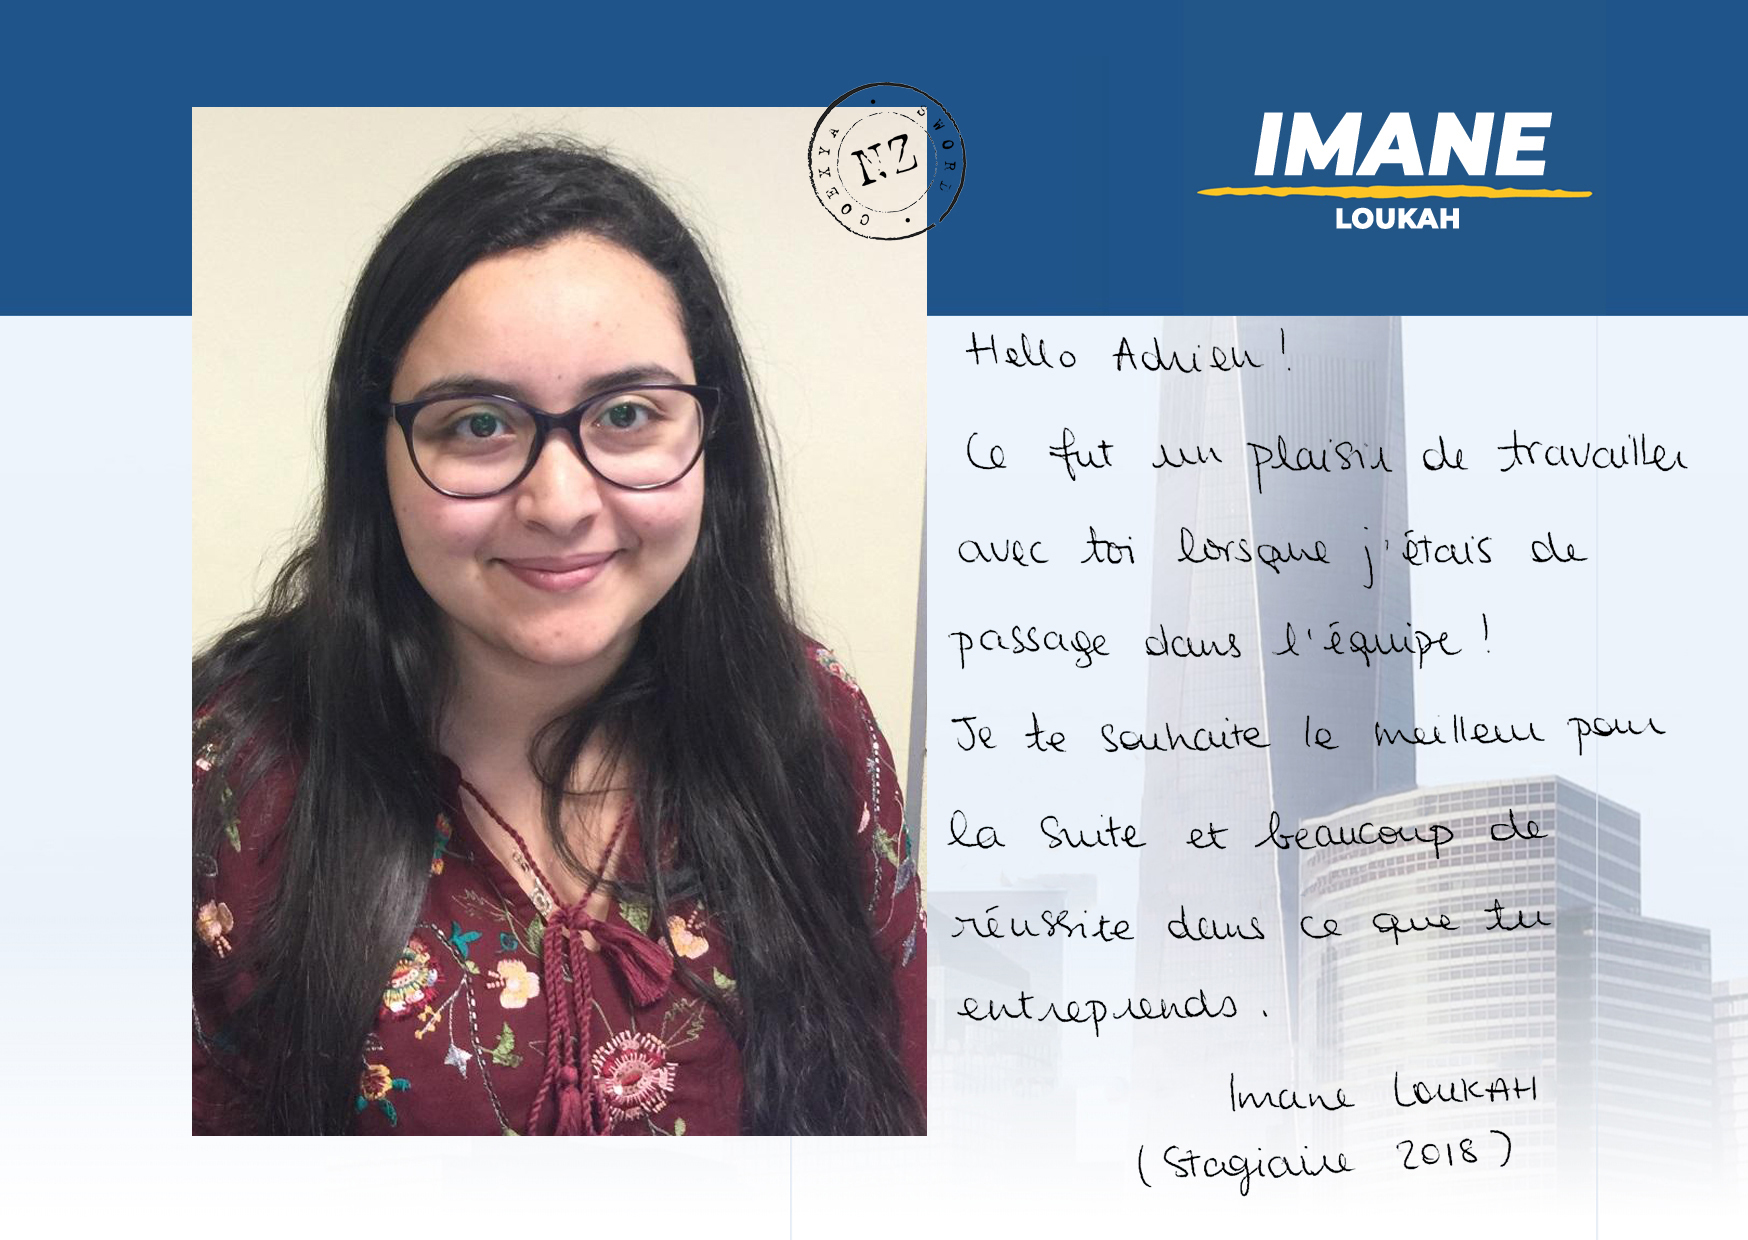 IMANE
LOUKAH
COEXYA • SWORD •
NZ
Hello Adrien !
Ce fut un plaisir de travailler
avec toi lorsque j'étais de
passage dans l'équipe !
Je te souhaite le meilleur pour
la suite et beaucoup de
réussite dans ce que tu
entreprends .
Imane LOUKAH
(Stagiaire 2018)